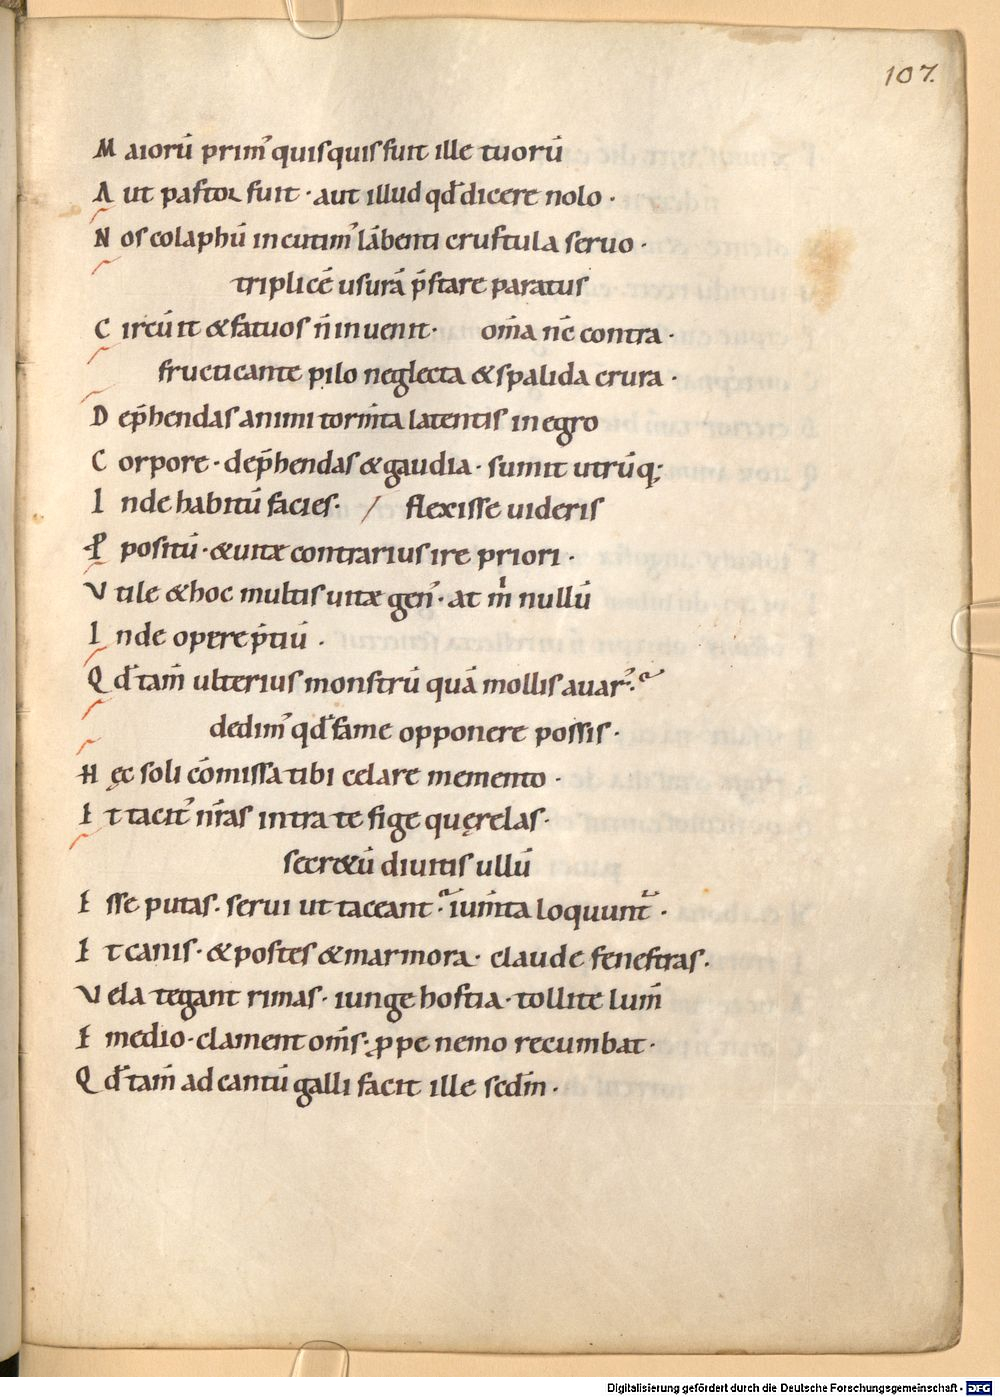 107.
Maiorū prim' quisquis fuit ille tuorū
Aut pastor fuit · aut illud qđ dicere nolo ·
Nos colaphū incutim' lābenti crustula seruo ·
triplicē usurā p̄stare paratus
Circūit & fatuos n̄ inuenit · om̄a nc̄ contra ·
fructicante pilo neglecta & spalida crura ·
Dep̄hendas animi torm̄ta latentis in egro
Corpore · dep̄hendas & gaudia · sumit utrūq;
Inde habitū facies · / flexisse uideris
Ꝓpositū · & uitæ contrarius ire priori ·
Vtile & hoc multis uitæ gen' · at m̄ nullū
Inde operę p̄tiū ·
Qđ tam̄ ulterius monstrū quā mollis auar'
dedim' qđ fame opponere possis ·
Hęc soli cōmissa tibi celare memento ·
Et tacit' nr̄as intra te fige quęrelas ·
secr&ū diuitis ullū
Esse putas · serui ut taceant · ium̄ta loquunt ·
Et canis · & postes & marmora · claude fenestras ·
Vela tegant rimas · iunge hostia · tollite lum̄
E medio · clament om̄s · ꝓpe nemo recumbat ·
Qđ tam̄ ad cantū galli facit ille sedm̄ ·
Digitalisierung gefördert durch die Deutsche Forschungsgemeinschaft - DFG